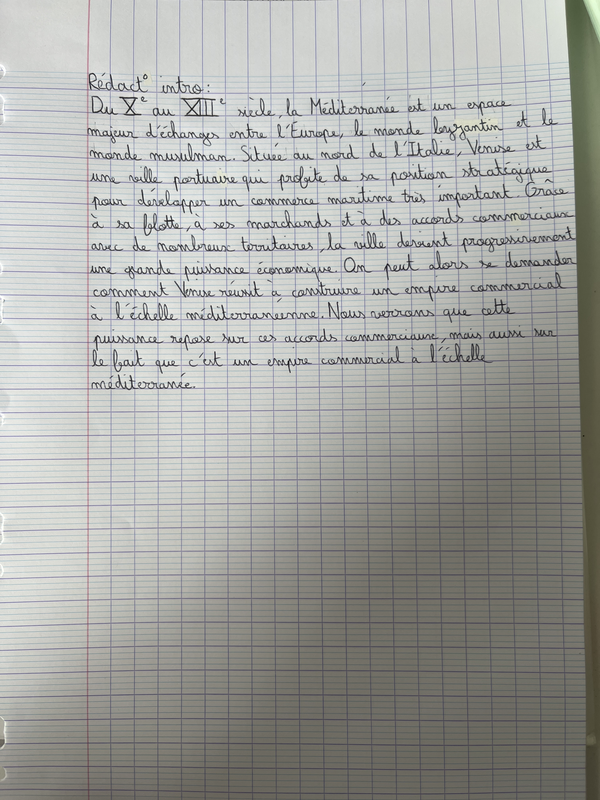 Rédact° intro :
Du Xe au XIIIe siècle, la Méditerranée est un espace
majeur d'échanges entre l'Europe, le monde byzantin et le
monde musulman. Située au nord de l'Italie, Venise est
une ville portuaire qui profite de sa position stratégique
pour développer un commerce maritime très important. Grâce
à sa flotte, à ses marchands et à des accords commerciaux
avec de nombreux territoires, la ville devient progressivement
une grande puissance économique. On peut alors se demander
comment Venise réussit à construire un empire commercial
à l'échelle méditerranéenne. Nous verrons que cette
puissance repose sur ces accords commerciaux, mais aussi sur
le fait que c'est un empire commercial à l'échelle
méditerranée.